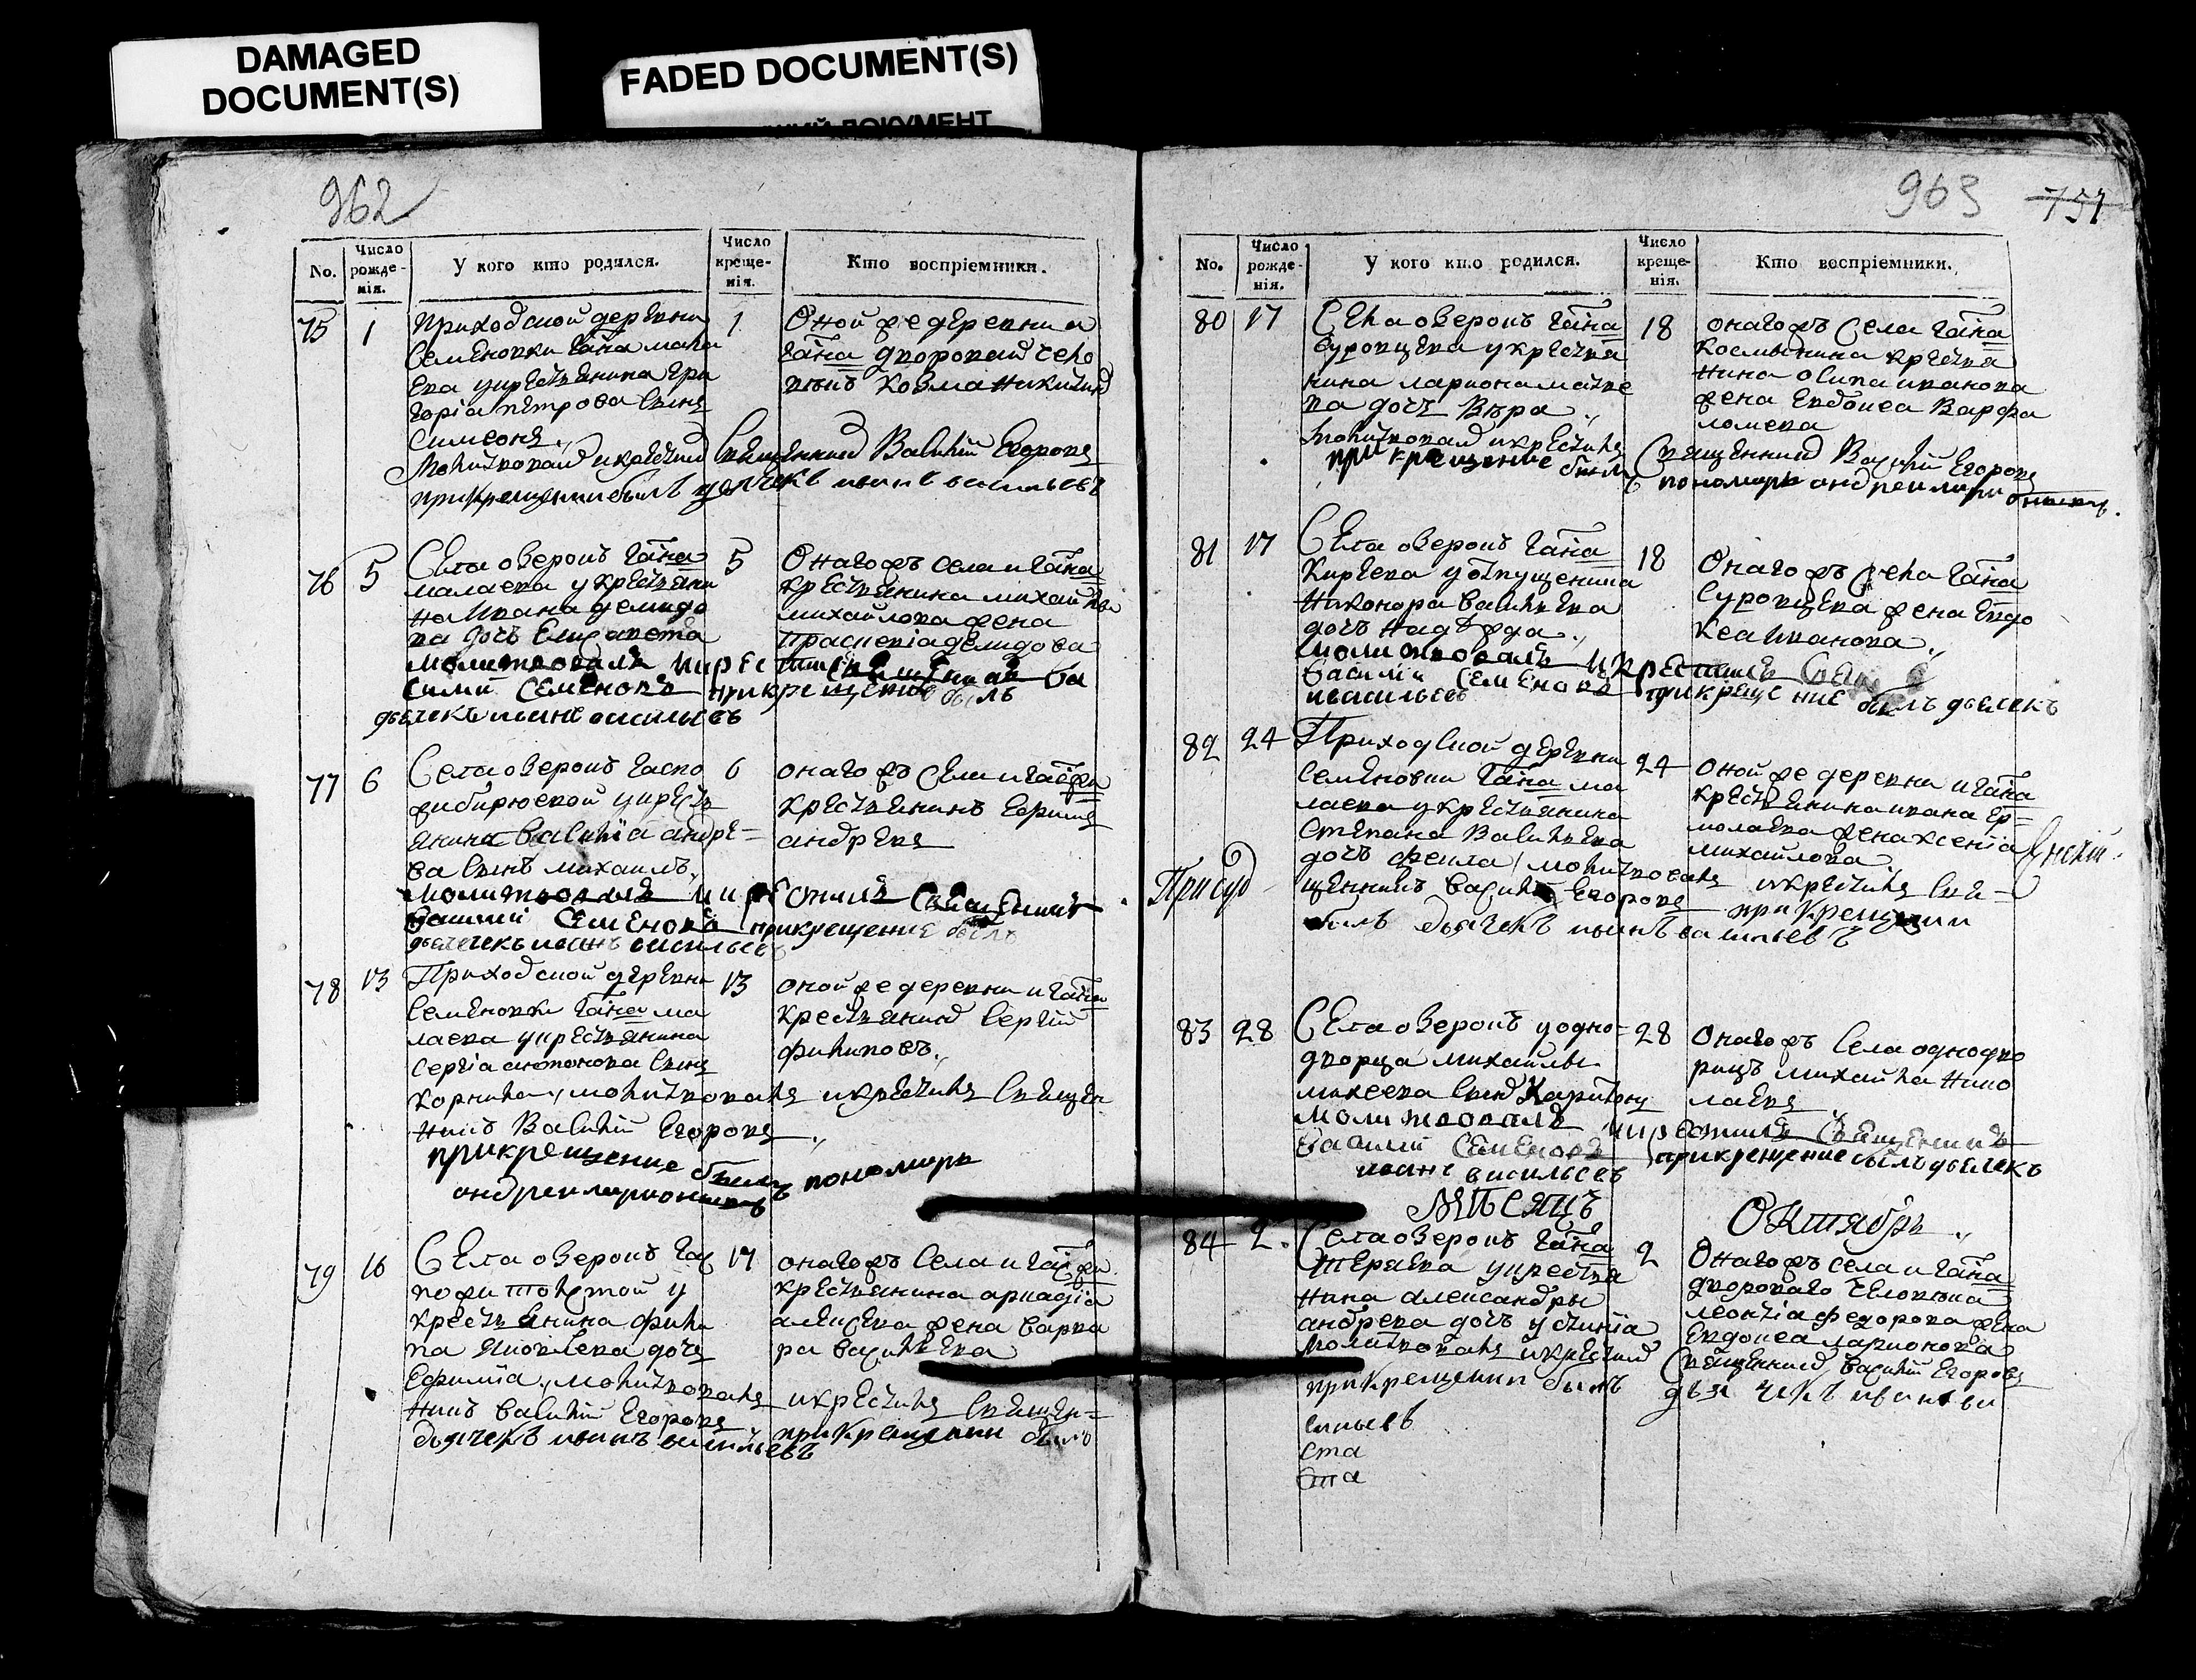 DAMAGED
DOCUMENT(S)
FADED DOCUMENT(S)
ДОКУМЕНТ
962
No.
Число рожденія.
У кого кто родился.
Число крещенія.
Кто воспріемники.
75 1
приходской деревни
Семеновки Гдна мала
ева укрестьянина Гри
горія петрова сынъ
Симеонъ
молитвовал икрестил
прикрещении былъ
1
Оной же деревни и
Гдна дворовай чело
векъ Козма Никитинъ
Священник Василій Егоровъ
дьячекъ иванъ васильевъ
76 5
Села озерокъ Гдна
малаева укрестьяни
на Ивана демидо
ва дочь Елисавета
молитвовалъ икрестилъ священник Ва
силий Семеновъ прикрещение былъ
дьячекъ иванъ васильевъ
5
Онагожъ села и Гдна
крестьянина михайлы
михайлова жена
праскевіа демидова
77 6
Села озерокъ Госпо
жи бирюевой укресть
янина Василіа андре=
ва сынъ михаилъ
молитвовалъ и крестилъ священникъ
Василий Семеновъ прикрещение былъ
дьячекъ иванъ васильев
6
онагожъ села и Гдсжи
крестьянинъ Ефимъ
андреевъ
78 13
Приходской деревни
Семеновки Гдна ма
лаева укрестьянина
Сергіа антонова сынъ
корнила, молитвовалъ икрестилъ священ
никъ Василій Егоровъ
прикрещение былъ пономарь
андреи ларионовъ
13
оной же деревни и Гдна
крестьянинъ Сергій
филиповъ
79 16
Села озерокъ Гос
пожи толстой у
крестьянина фили
па яковлева дочь
Ефиміа, молитвовалъ икрестилъ священ=
никъ Василій Егоровъ прикрещении былъ
дьячекъ иванъ васильевъ
17
онагожъ села и Гдсжи
крестьянина аркадіа
алексеева жена Варва
ра васильева
963 751
No.
Число рожденія.
У кого кто родился.
Число крещенія.
Кто воспріемники.
80 17
Села озерокъ Гдна
Суровцева укрестья
нина лариона матве
ва дочь Вера
молитвовал икрестилъ
прикрещение былъ
18
онагожъ Села Гдна
космынина крестья
нина осипа иванова
жена Евдокеа Варфа
ломеева
Священник Василій Егоровъ
пономарь андреи ларионовъ
81 17
Села озерокъ Гдна
Киреева уотпущенина
Никонора Васильева
дочь надежда
молитвовалъ икрестилъ Свящ
Василіи Семеновъ прикрещение былъ дьячекъ
ивасильев
18
Онагожъ Села Гдна
Суровцева жена Евдо
кеа иванова
82 24
Приходской деревни
Семеновки Гдна ма
лаева укрестьянина
Степана Васильева
дочь фекла, молитвовалъ икрестилъ свя=
щенникъ Василій Егоровъ прикрещении
былъ дьячекъ иванъ васильевъ
24
Оной же деревни и Гдна
крестьянина ивана ер=
молаева жена ксеніа
михайлова
Присуд
83 28
Села озерокъ уодно=
дворца михайлы
михеева сынъ Харитонъ
молитвовалъ икрестилъ Священникъ
Василий Семеновъ прикрещение былъ дьячекъ
иванъ васильев
28
Онагожъ Села однодво
рецъ михайла Нико
лаевъ
Мѣсяцъ Октябрь
84 2
Села озерокъ Гдна
укрестья
нина александры
андрева дочь устиніа
молитвовалъ икрестил
прикрещении былъ
сильевъ
ста
ста
2
Онагожъ села и Гдна
двороваго человека
леонтіа федорова жена
Евдокеа ларионова
Священник Василій Егоровъ
дьячекъ иванъ ва